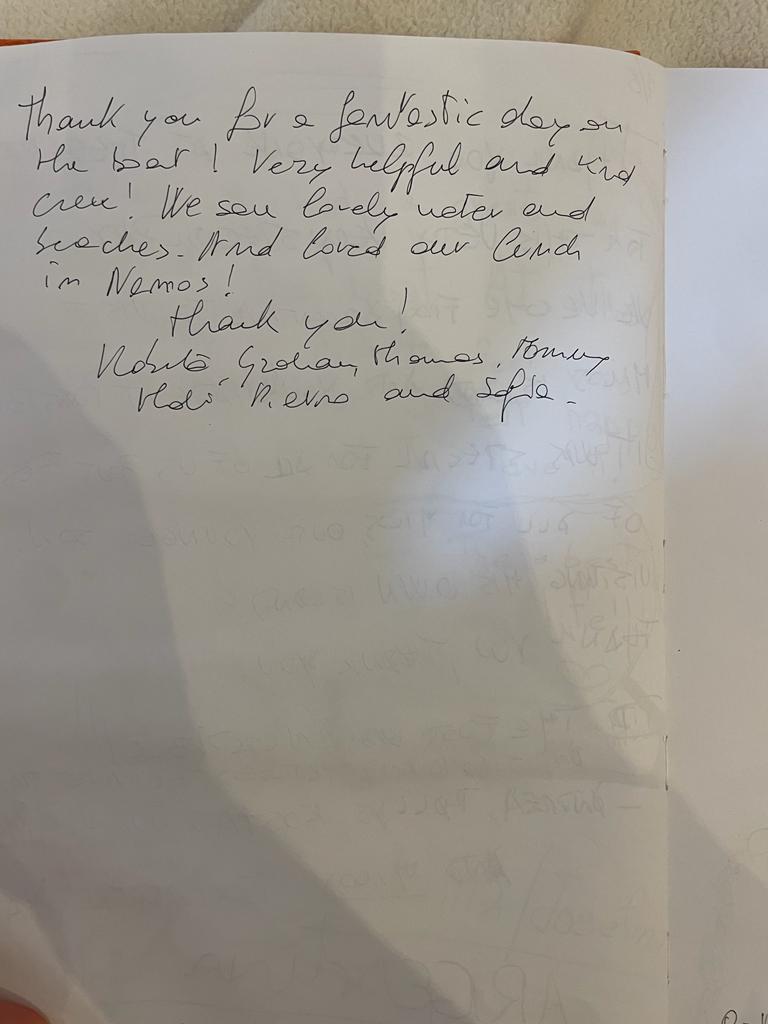 Thank you for a fantastic day on
the boat! Very helpful and kind
crew! We saw lovely water and
beaches. And loved our lunch
in Nemos!
Thank you!
Graham, Thomas, Tommy
and Sofia.